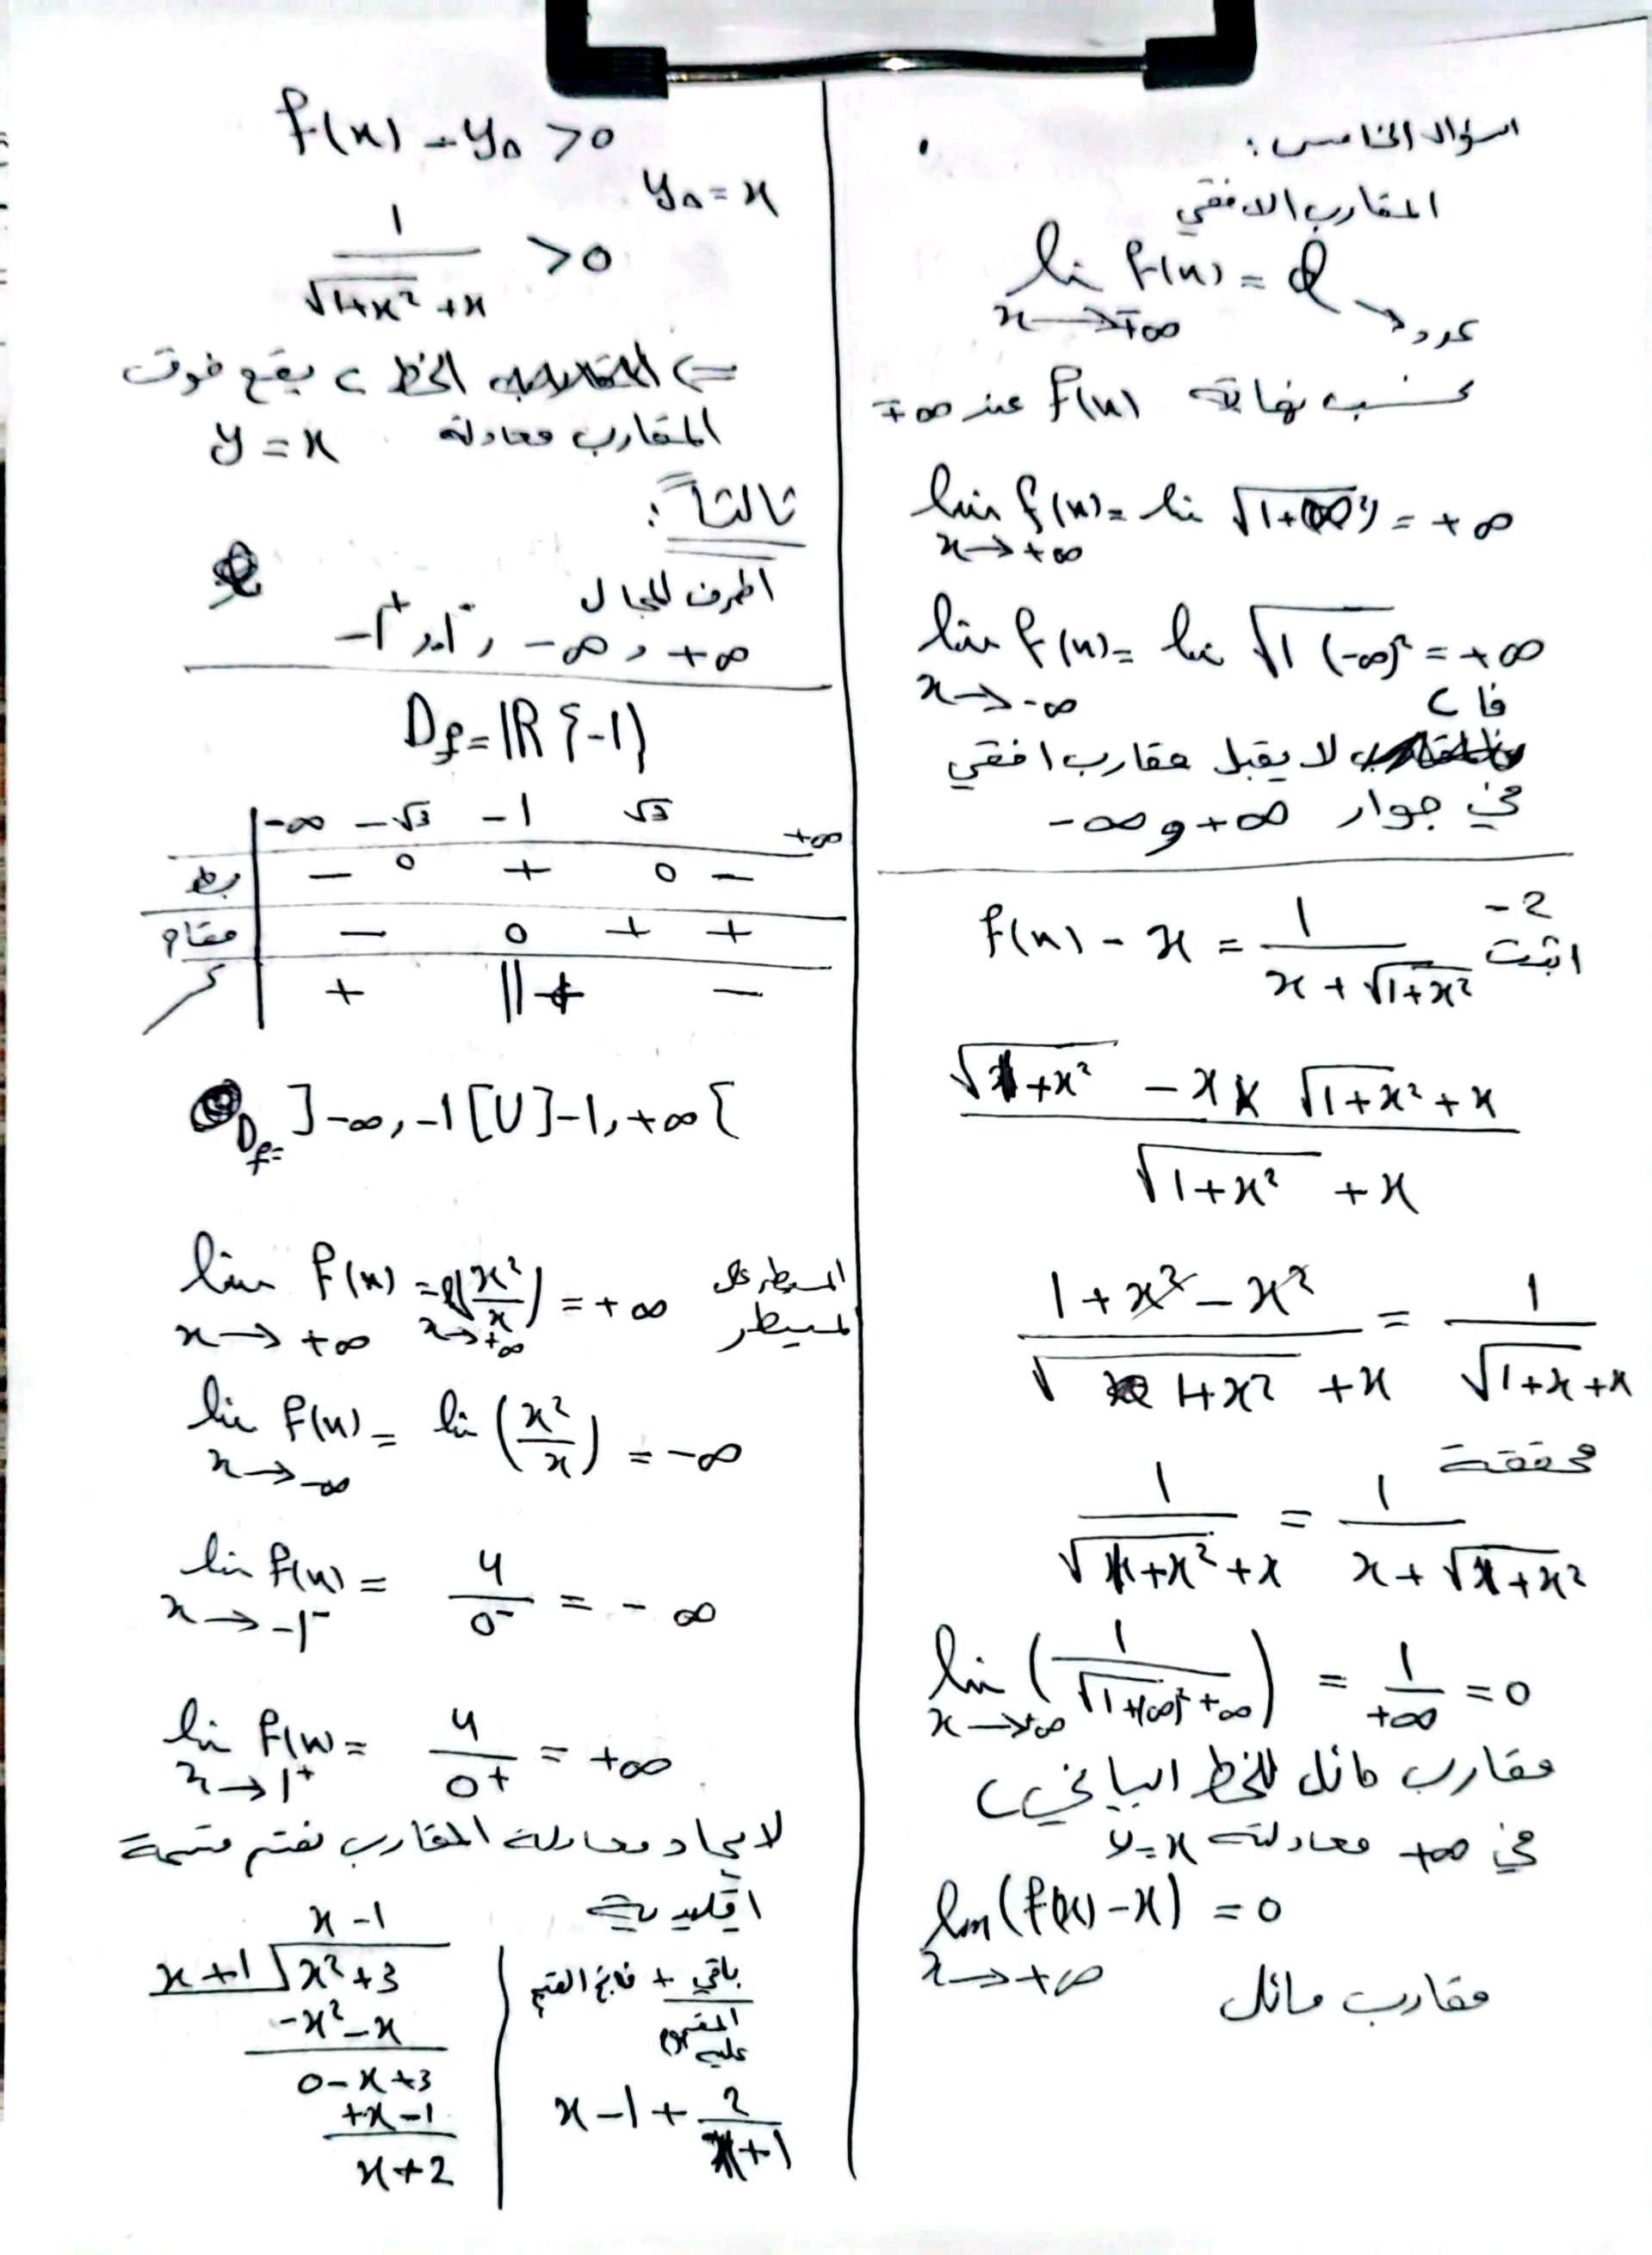 السؤال الخامس:
المقارب الافقي
lim f(x) = l
x → ∓∞ عدد
نحسب نهاية f(x) عند ∓∞
lim f(x) = lim √(1+(∞)²) = +∞
x → +∞
lim f(x) = lim √(1 (-∞)²) = +∞
x → -∞
فان C
لا يقبل مقارب افقي
في جوار +∞ و -∞
2-
اثبت f(x) - x = 1 / (x + √(1+x²))
√(1+x²) - x × √(1+x²) + x
√(1+x²) + x
(1 + x² - x²) / (√(1+x²) + x) = 1 / (√(1+x) + x)
محققة
1 / (√(1+x²) + x) = 1 / (x + √(1+x²))
lim (1 / (√(1+(∞)²) + ∞)) = 1 / +∞ = 0
x → +∞
مقارب مائل للخط البياني C
في +∞ معادلته y = x
lim (f(x) - x) = 0
x → +∞
مقارب مائل
f(x) - y∆ > 0
y∆ = x
1 / (√(1+x²) + x) > 0
⇐ الخط C يقع فوق
المقارب معادلة y = x
ثالثاً:
اطرف المجال
+∞ , -∞ ,
D_f = ℝ {-1}
-∞ -√3 -1 √3 +∞
بسط - 0 + 0 -
مقام - 0 + +
+ || + -
D_f = ]-∞, -1[ U ]-1, +∞[
lim f(x) = (x²/x) = +∞
x → +∞ x → +∞
المسيطر على
المسيطر
lim f(x) = lim (x²/x) = -∞
x → -∞
lim f(x) = 4/0⁻ = -∞
x → -1⁻
lim f(x) = 4/0⁺ = +∞
x → 1⁺
لايجاد معادلة المقارب نقسم قسمة
اقليدية
x - 1
x + 1 √ x² + 3
-x² - x
0 - x + 3
+x - 1
x + 2
باقي + ناتج القسمة
المقسوم
عليه
x - 1 + 2/(x+1)